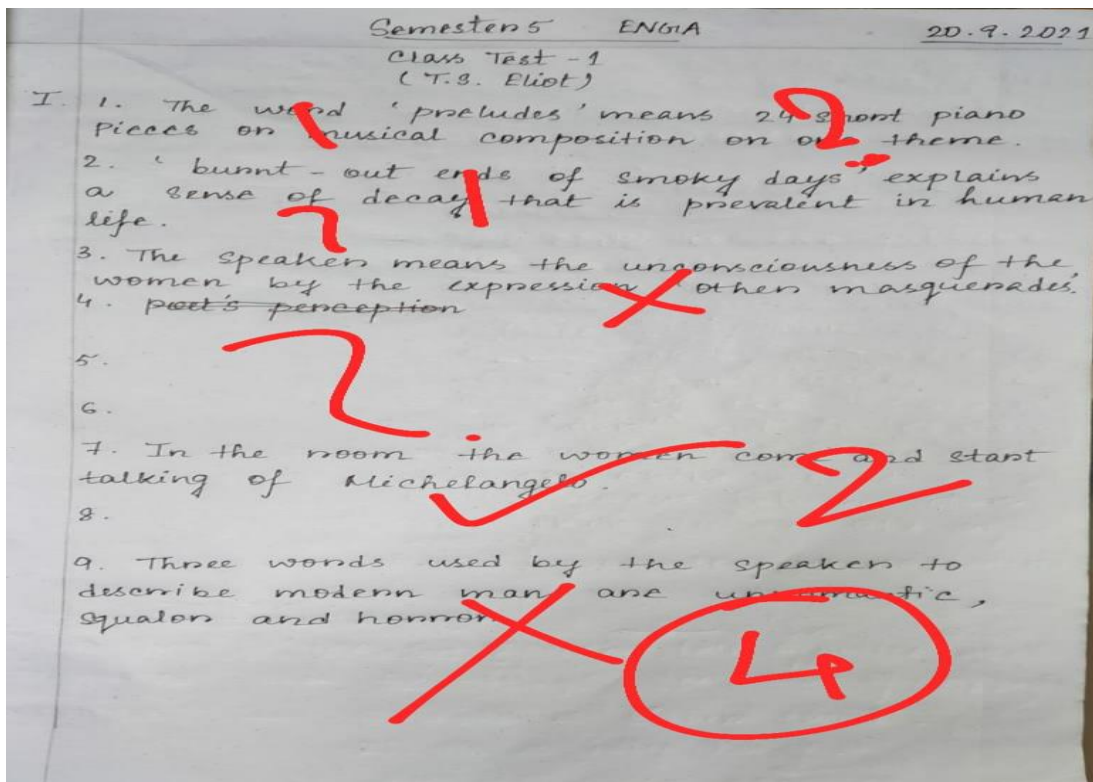 Semester 5 ENGA 20.9.2021
Class Test - 1
(T.S. Eliot)
I. 1. The word 'preludes' means 24 short piano 2
pieces or musical composition on one theme.
1
2. 'burnt-out ends of smoky days' explains
a sense of decay that is prevalent in human
life.
1
3. The speaker means the unconsciousness of the
women by the expression 'other masquerades.
4. poet's perception
5.
6.
7. In the room the women come and start
talking of Michelangelo. 2
8.
9. Three words used by the speaker to
describe modern man are unromantic,
squalor and horror.
4